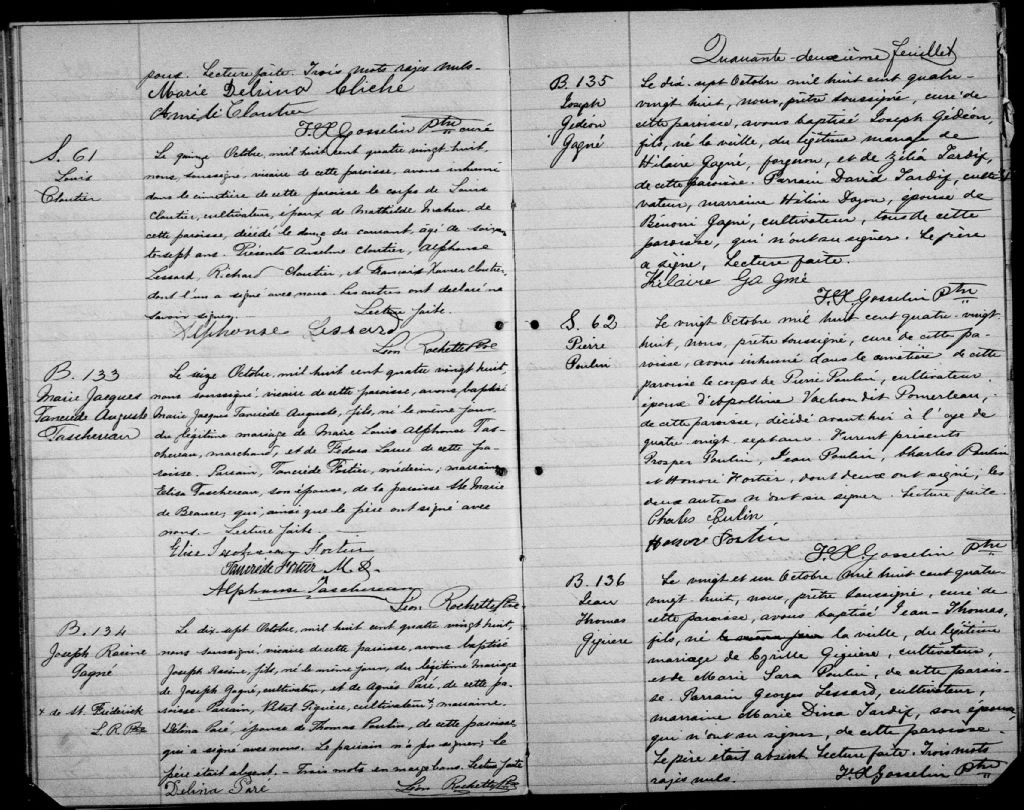 poux. Lecture faite. Trois mots rayés nuls.
Marie Delvina Cliché
Cloutier
F. X. Gosselin Ptre curé
S. 61
Louis
Cloutier
Le quinze Octobre, mil huit cent quatre vingt huit,
nous, soussigné, vicaire de cette paroisse, avons inhumé
dans le cimetière de cette paroisse le corps de Louis
Cloutier, cultivateur, époux de Mathilde Maheu, de
cette paroisse, décédé le douze du courant âgé de soixan
te-sept ans. Présents Anselme Cloutier, Alphonse
Lessard, Richard Cloutier, et François Xavier Cloutier,
dont l'un a signé avec nous. Les autres ont déclaré ne
savoir signer. Lecture faite.
Alphonse Lessard
Léon Rochette Ptre
B. 133
Marie Jacques
Tancrède Auguste
Taschereau
Le seize Octobre, mil huit cent quatre vingt huit,
nous soussigné vicaire de cette paroisse, avons baptisé
Marie Jacques Tancrède Auguste, fils, né le même jour,
du légitime mariage de Marie Louis Alphonse Tas-
chereau, marchand, et de Fedora Larue de cette pa-
roisse. Parrain, Tancrède Fortier, médecin; marraine
Elisa Taschereau, son épouse, de la paroisse Ste Marie
de Beauce, qui, ainsi que le père ont signé avec
nous. - Lecture faite.
Elise Fortier
Tancrède Fortier M. D.
Alphonse Taschereau
Léon Rochette Ptre
B. 134
Joseph Rosine
Gagné
+ de St. Frédérick
L. R. Ptre
Le dix-sept Octobre, mil huit cent quatre vingt huit,
nous soussigné vicaire de cette paroisse, avons baptisé
Joseph Rosine, fils, né le même jour, du légitime mariage
de Joseph Gagné, cultivateur, et de Agnès Paré, de cette pa-
roisse. Parrain, Vital Giguère, cultivateur +, marraine
Délina Paré, épouse de Thomas Poulin, de cette paroisse
qui a signé avec nous. Le parrain n'a pu signer; le
père était absent. - Trois mots en marge bons. Lecture faite
Delina Paré
Léon Rochette Ptre
Quarante-deuxième feuillet
B. 135
Joseph
Gédéon
Gagné
Le dix-sept Octobre mil huit cent quatre-
vingt huit, nous, prêtre soussigné, curé de
cette paroisse, avons baptisé Joseph Gédéon,
fils, né la veille, du légitime mariage de
Hilaire Gagné, forgeron, et de Zélia Tardif,
de cette paroisse. Parrain David Tardif, culti-
vateur, marraine Hélène, épouse de
Bénoni Gagné, cultivateur, tous de cette
paroisse, qui n'ont su signer. Le père
a signé, Lecture faite.
Hilaire Gagné
F. X. Gosselin Ptre
S. 62
Pierre
Poulin
Le vingt Octobre mil huit cent quatre-vingt
huit, nous, prêtre soussigné, curé de cette pa-
roisse, avons inhumé dans le cimetière de cette
paroisse le corps de Pierre Poulin, cultivateur,
époux d'Apolline Vachon dit Pomerleau,
de cette paroisse, décédé avant hier à l'age de
quatre vingt sept ans. Furent présents
Prosper Poulin, Jean Poulin, Charles Poulin
et Honoré Fortier, dont deux ont signé; les
deux autres n'ont su signer. Lecture faite.
Charles Poulin
Honoré Fortin
F. X. Gosselin Ptre
B. 136
Jean
Thomas
Giguere
Le vingt et un Octobre mil huit cent quatre-
vingt huit, nous, prêtre soussigné, curé de
cette paroisse, avons baptisé Jean-Thomas,
fils, né le même jour la veille, du légitime
mariage de Cyrille Giguère, cultivateur,
et de Marie Sara Poulin, de cette parois-
se. Parrain Georges Lessard, cultivateur,
marraine Marie Dina Tardif, son épouse,
qui n'ont su signer, de cette paroisse.
Le père était absent Lecture faite. Trois mots
rayés nuls. F. X. Gosselin Ptre